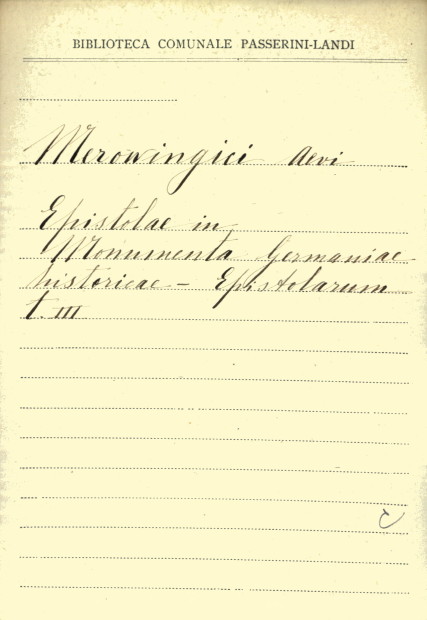 BIBLIOTECA COMUNALE PASSERINI-LANDI
Merowingici Aevi
Epistolae in
Monumenta Germaniae
historicae - Epistolarum
t. III